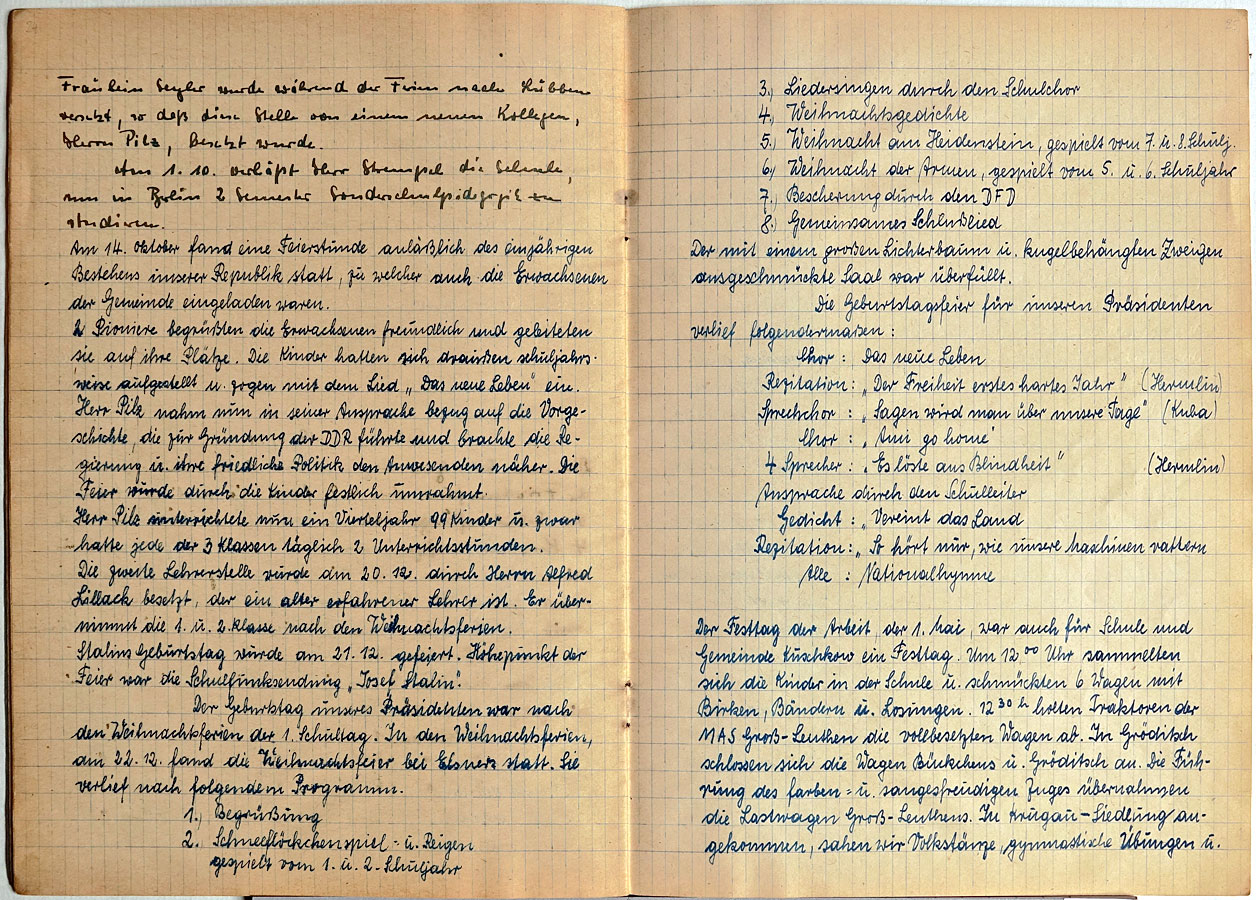 Fräulein Seyler wurde während der Ferien nach Lübben
versetzt, so daß diese Stelle von einem neuen Kollegen,
Herrn Pilz, besetzt wurde.
Am 1. 10. verläßt Herr Strempel die Schule,
um in Berlin 2 Semester Sonderschulpädagogik zu
studieren.
Am 14. Oktober fand eine Feierstunde anläßlich des einjährigen
Bestehens unserer Republik statt, zu welcher auch die Erwachsenen
der Gemeinde eingeladen waren.
2 Pioniere begrüßten die Erwachsenen freundlich und geleiteten
sie auf ihre Plätze. Die Kinder hatten sich draußen schuljahrs-
weise aufgestellt u. zogen mit dem Lied „Das neue Leben" ein.
Herr Pilz nahm nun in seiner Ansprache bezug auf die Vorge-
schichte, die zur Gründung der DDR führte und brachte die Re-
gierung u. ihre friedliche Politik den Anwesenden näher. Die
Feier wurde durch die Kinder festlich umrahmt.
Herr Pilz unterrichtete nun ein Vierteljahr 99 Kinder u. zwar
hatte jede der 3 Klassen täglich 2 Unterrichtsstunden.
Die zweite Lehrerstelle wurde am 20.12. durch Herrn Alfred
Lillack besetzt, der ein alter erfahrener Lehrer ist. Er über-
nimmt die 1. u. 2. Klasse nach den Weihnachtsferien.
Stalins Geburtstag wurde am 21.12. gefeiert. Höhepunkt der
Feier war die Schulfunksendung „Josef Stalin".
Der Geburtstag unseres Präsidenten war nach
den Weihnachtsferien der 1. Schultag. In den Weihnachtsferien,
am 22.12. fand die Weihnachtsfeier bei Elsners statt. Sie
verlief nach folgendem Programm.
1.) Begrüßung
2. Schneeflöckchenspiel - u. Reigen
gespielt vom 1. u. 2. Schuljahr
3.) Liedersingen durch den Schulchor
4.) Weihnachtsgedichte
5.) Weihnacht am Heidenstein, gespielt vom 7. u. 8. Schulj.
6.) Weihnacht der Armen, gespielt vom 5. u. 6. Schuljahr
7.) Bescherung durch den DFD
8.) Gemeinsames Schlußlied
Der mit einem großen Lichterbaum u. kugelbehängten Zweigen
ausgeschmückte Saal war überfüllt.
Die Geburtstagsfeier für unseren Präsidenten
verlief folgendermaßen:
Chor: Das neue Leben
Rezitation: „Der Freiheit erstes hartes Jahr" (Hermlin)
Sprechchor: „Sagen wird man über unsere Tage" (Kuba)
Chor: „Ami go home"
4 Sprecher: „Es löste aus Blindheit" (Hermlin)
Ansprache durch den Schulleiter
Gedicht: „Vereint das Land
Rezitation: „So hört nur, wie unsere Maschinen rattern
Alle: Nationalhymne
Der Festtag der Arbeit, der 1. Mai, war auch für Schule und
Gemeinde Kuschkow ein Festtag. Um 12⁰⁰ Uhr sammelten
sich die Kinder in der Schule u. schmückten 6 Wagen mit
Birken, Bändern u. Losungen. 12³⁰ h holten Traktoren der
MAS Groß-Leuthen die vollbesetzten Wagen ab. In Gröditsch
schlossen sich die Wagen Bückchens u. Gröditsch an. Die Füh-
rung des farben- u. sangesfreudigen Zuges übernahmen
die Lastwagen Groß-Leuthens. In Krugau-Siedlung an-
gekommen, sahen wir Volkstänze, gymnastische Übungen u.